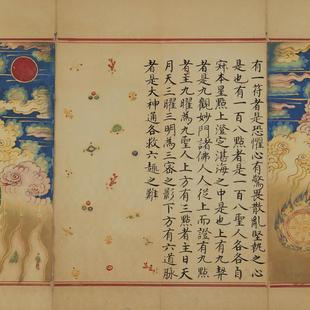 有一符者是恐懼心有驚畏散亂堅執之心
是也有一百八點者是一百八聖人各各自
寂本呈點上澄定湛海之中是也上有九契
者是九觀妙門諸佛人人從上而證有九點
者主九曜爲九聖人上方有三點者主日天
月天三曜三明爲三容之影下方有六道脉
者是大神通各救六趣之難